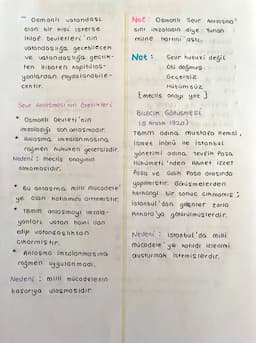 - Osmanlı vatandaşı
olan bir kişi isterse
İtilaf Devletleri'nin
vatandaşlığa geçebilecek
ve vatandaşlığa geçtik-
ten itibaren kapitülas-
yonlardan faydalanabile-
cektir.
Sevr Antlaşması'nın Özellikleri
* Osmanlı Devleti'nin
imzaladığı son antlaşmadır.
* Antlaşma imzalanmasına
rağmen hukuken geçersizdir.
Nedeni: meclis onayının
olmamasıdır.
* Bu antlaşma milli mücadele'
ye olan katılımı arttırmıştır.
* TBMM antlaşmayı imzala-
yanları vatan haini ilan
edip vatandaşlıktan
çıkarmıştır.
* Antlaşma imzalanmasına
rağmen uygulanmadı.
Nedeni: milli mücadelenin
başarıya ulaşmasıdır.
Not: Osmanlı Sevr Antlaşma'
sını imzaladın diye Yunan
eline astı.
Not: Sevr hukuki değil
Ölü doğmuş
Geçersiz
Hükümsüz
{meclis onayı yok}
BİLECİK GÖRÜŞMESİ
(5 Aralık 1920)
TBMM adına Mustafa Kemal,
İsmet İnönü ile İstanbul
yönetimi adına Tevfik Paşa
Hükümeti'nden Ahmet İzzet
Paşa ve Salih Paşa arasında
yapılmıştır. Görüşmelerden
herhangi bir sonuç çıkmamış;
İstanbul'dan gelenler zorla
Ankara'ya götürülmüşlerdir.
Nedeni: İstanbul'da milli
mücadele'ye katıldı izlenimi
oluşturmak istemişlerdir.